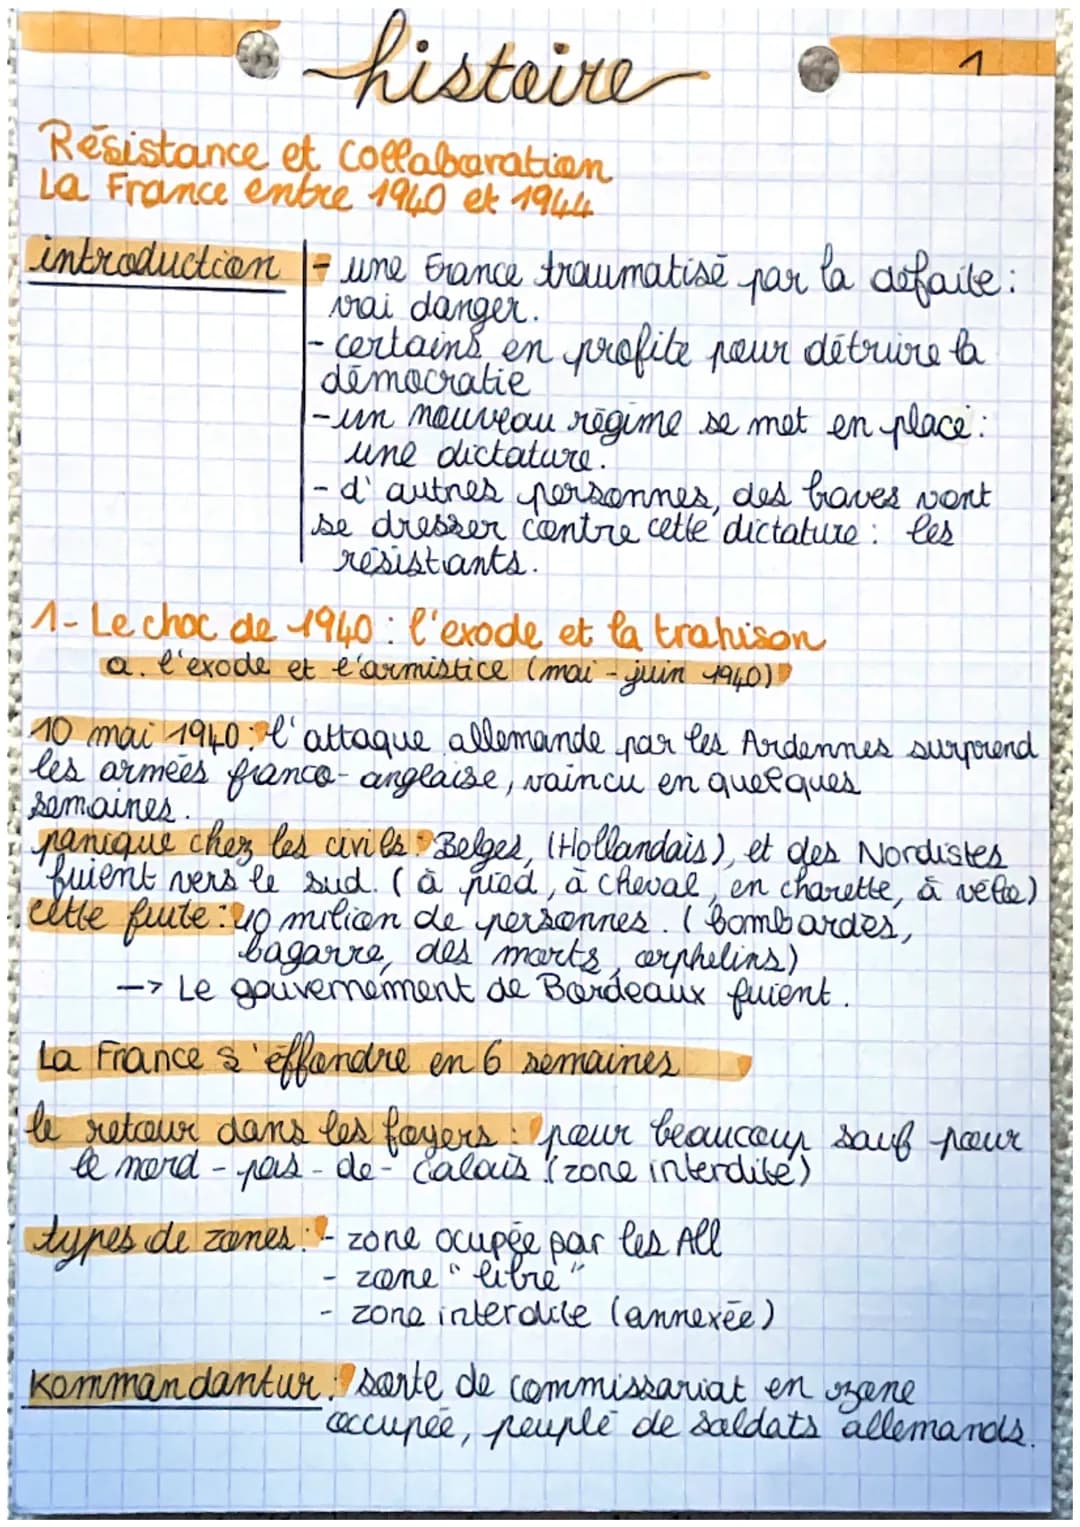 histoire
1
Résistance et Collaboration
La France entre 1940 et 1944
introduction
- une France traumatisé par la défaite :
vrai danger.
- certains en profite pour détruire la
démocratie
- un nouveau régime se met en place :
une dictature.
- d'autres personnes, des braves vont
se dresser contre cette dictature : les
résistants.
1- Le choc de 1940 : l'exode et la trahison
a. l'exode et l'armistice (mai - juin 1940)
10 mai 1940 : l'attaque allemande par les Ardennes surprend
les armées franco-anglaise, vaincu en quelques
semaines.
panique chez les civils : Belges, (Hollandais), et des Nordistes
fuient vers le sud. (à pied, à cheval, en charette, à vélo)
cette fuite : 10 milion de personnes. (bombardés,
bagarre, des morts, orphelins)
--> Le gouvernement de Bordeaux fuient.
La France s'éffondre en 6 semaines
le retour dans les foyers : pour beaucoup sauf pour
le nord - pas - de - Calais (zone interdite)
types de zones : - zone ocupée par les All
- zone "libre"
- zone interdite (annexée)
Kommandantur : sorte de commissariat en zone
occupée, peuplé de soldats allemands.